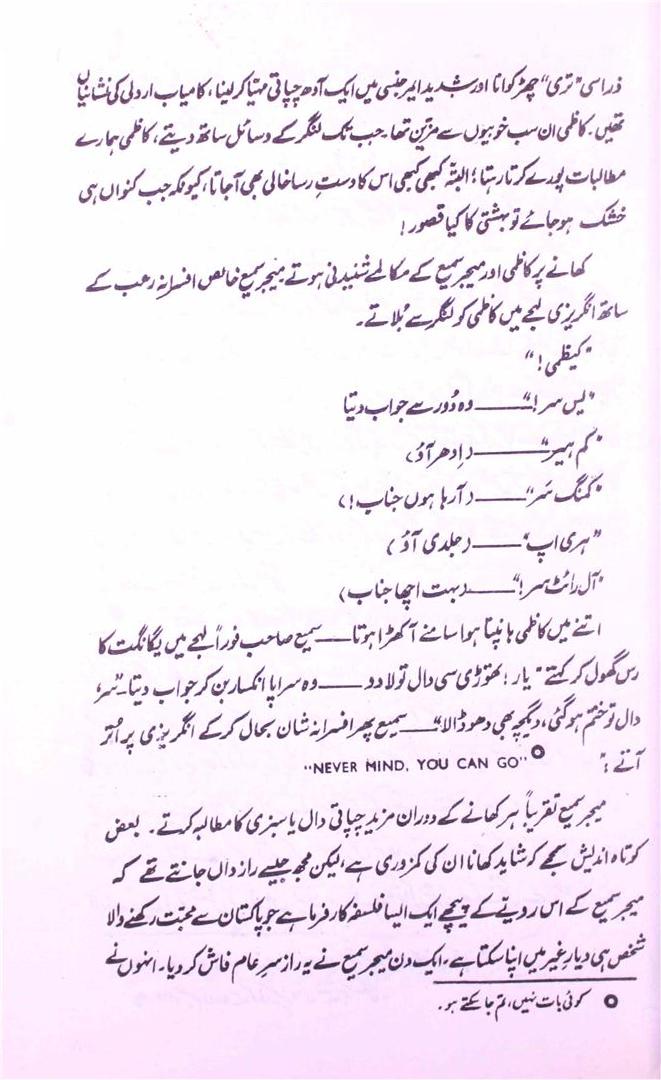 ذرا سی "تری" چھڑکوانا اور شدید ایمرجنسی میں ایک آدھ چپاتی مہیّا کر لینا، کامیاب اردلی کی نشانیاں
تھیں۔ کاظمی ان سب خوبیوں سے مزیّن تھا۔ جب تک لنگر کے وسائل ساتھ دیتے، کاظمی ہمارے
مطالبات پورے کرتا رہتا؛ البتّہ کبھی کبھی اس کا دستِ رسا خالی بھی آ جاتا، کیونکہ جب کنواں ہی
خشک ہو جائے تو بہشتی کا کیا قصور!
کھانے پر کاظمی اور میجر سمیع کے مکالمے شنیدنی ہوتے۔ میجر سمیع خالص افسرانہ رعب کے
ساتھ انگریزی لہجے میں کاظمی کو لنگر سے بُلاتے۔
"کیظمی!"
"یس سر!" ــــــ وہ دُور سے جواب دیتا
"کم ہیر" ــــــ (اِدھر آؤ)
"کمنگ سَر" ــــــ (آ رہا ہوں جناب!)
"ہری اپ" ــــــ (جلدی آؤ)
"آل رائٹ سر!" ــــــ (بہت اچھا جناب)
اتنے میں کاظمی ہانپتا ہوا سامنے آ کھڑا ہوتا ــــــ سمیع صاحب فوراً لہجے میں یگانگت کا
رس گھول کر کہتے "یار! تھوڑی سی دال تو لا دو ــــــ وہ سراپا انکسار بن کر جواب دیتا۔ "سر،
دال تو ختم ہو گئی، دیگچہ بھی دھو ڈالا" ــــــ سمیع پھر افسرانہ شان بحال کر کے انگریزی پر اُتر
آتے: "NEVER MIND, YOU CAN GO" ○
میجر سمیع تقریباً ہر کھانے کے دوران مزید چپاتی دال یا سبزی کا مطالبہ کرتے۔ بعض
کوتاہ اندیش سمجھے کہ شاید کھانا ان کی کمزوری ہے، لیکن مجھ جیسے راز داں جانتے تھے کہ
میجر سمیع کے اس رویّے کے پیچھے ایک ایسا فلسفہ کارفرما ہے جو پاکستان سے محبّت رکھنے والا
شخص ہی دیارِ غیر میں اپنا سکتا ہے۔ ایک دن میجر سمیع نے یہ راز سرِ عام فاش کر دیا۔ انہوں نے
○ کوئی بات نہیں، تم جا سکتے ہو۔